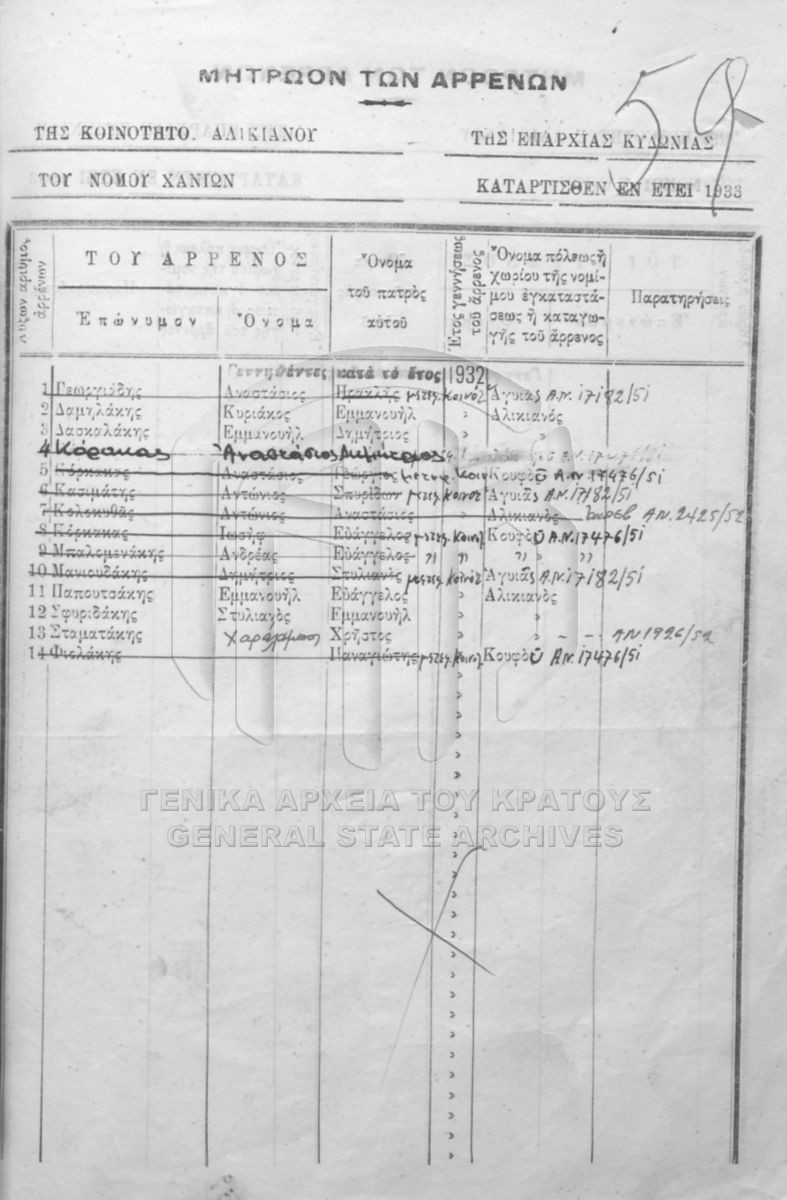 ΜΗΤΡΩΟΝ ΤΩΝ ΑΡΡΕΝΩΝ
59
ΤΗΣ ΚΟΙΝΟΤΗΤΟ. ΑΛΙΚΙΑΝΟΥ
ΤΗΣ ΕΠΑΡΧΙΑΣ ΚΥΔΩΝΙΑΣ
ΤΟΥ ΝΟΜΟΥ ΧΑΝΙΩΝ
ΚΑΤΑΡΤΙΣΘΕΝ ΕΝ ΕΤΕΙ 1933
αύξων αριθμος ἀρρένων
ΤΟΥ ΑΡΡΕΝΟΣ
Ἐπώνυμον Ὄνομα
Ὄνομα
τοῦ πατρὸς
αὐτοῦ
Ἔτος γεννήσεως
τοῦ ἄρρενος
Ὄνομα πόλεως ἢ
χωρίου τῆς νομί-
μου ἐγκαταστά-
σεως ἢ καταγω-
γῆς τοῦ ἄρρενος
Παρατηρήσεις
Γεννηθέντες κατὰ τὸ ἔτος 1932
1 Γεωργιάδης Αναστάσιος Ηρακλῆς μετεγ. Κοινότ Ἀγυιᾶς Α.Ν. 17182/51
2 Δαμηλάκης Κυριάκος Εμμανουὴλ » Αλικιανὸς
3 Δασκαλάκης Εμμανουὴλ Δημήτριος » »
4 Κόρακας Ἀναστάσιος Δημήτριος
5 Κόρκακας Αναστάσιος Γεώργιος μετεγ. Κοιν Κουφοῦ Α.Ν. 17476/51
6 Κασιμάτης Αντώνιος Σπυρίδων μετεγ. Κοινοτ Ἀγυιᾶς Α.Ν. 17182/51
7 Κολοκυθᾶς Αντώνιος Αναστάσιος » Αλικιανὸς Α.Ν. 2425/52
8 Κόρκακας Ιωσὴφ Εὐάγγελος μετεγ. Κοινότ Κουφοῦ Α.Ν. 17476/51
9 Μπαλομενάκης Ανδρέας Εὐάγγελος » » » » »
10 Μανιουδάκης Δημήτριος Στυλιανὸς μετεγ. Κοινότ Ἀγυιᾶς Α.Ν. 17182/51
11 Παπουτσάκης Εμμανουὴλ Εὐάγγελος » Αλικιανὸς
12 Σφυριδάκης Στυλιανὸς Εμμανουὴλ » »
13 Σταματάκης Χαράλαμπος Χρῆστος » » – – ΑΝ 1926/52
14 Φιολάκης Παναγιώτης μετεγ. Κοινότ Κουφοῦ Α.Ν. 17476/51
ΓΕΝΙΚΑ ΑΡΧΕΙΑ ΤΟΥ ΚΡΑΤΟΥΣ
GENERAL STATE ARCHIVES